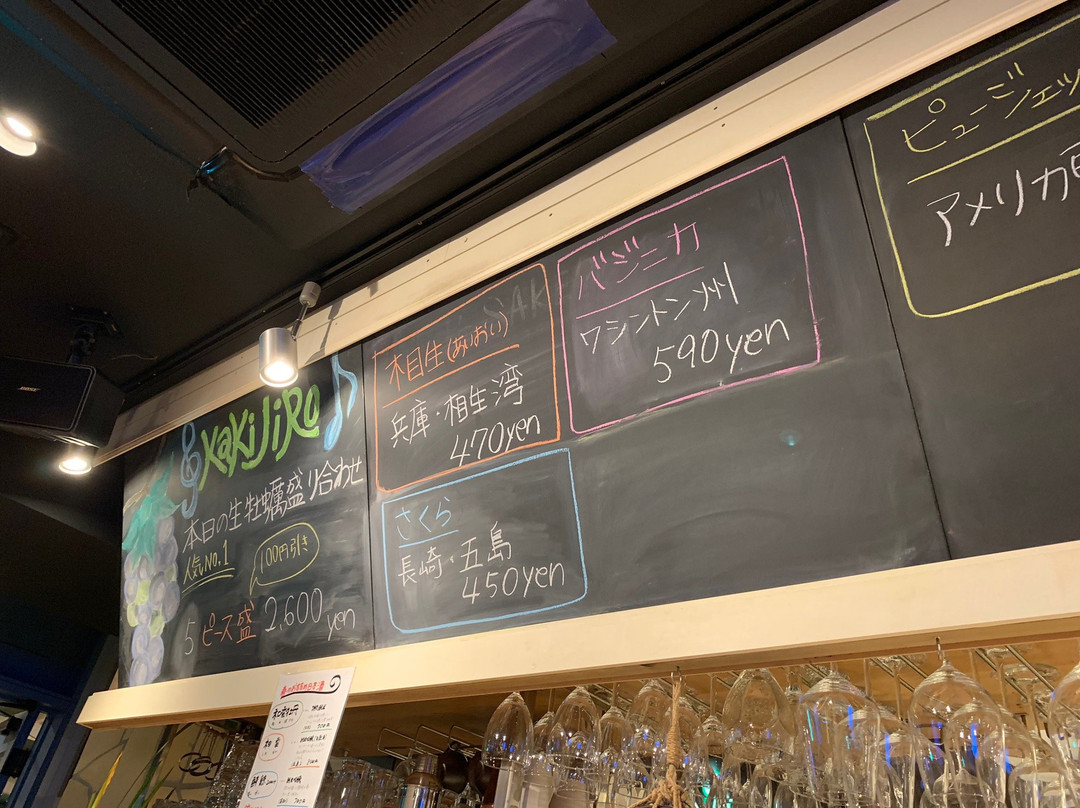 KaKiJiRo
本日の生牡蠣盛り合わせ
人気No.1
100円引き
5ピース盛 2,600 yen
相生(あいおい)
兵庫・相生湾
470yen
さくら
長崎・五島
450yen
バジニカ
ワシントン州
590yen
ピュージェッ
アメリカ
BOSE